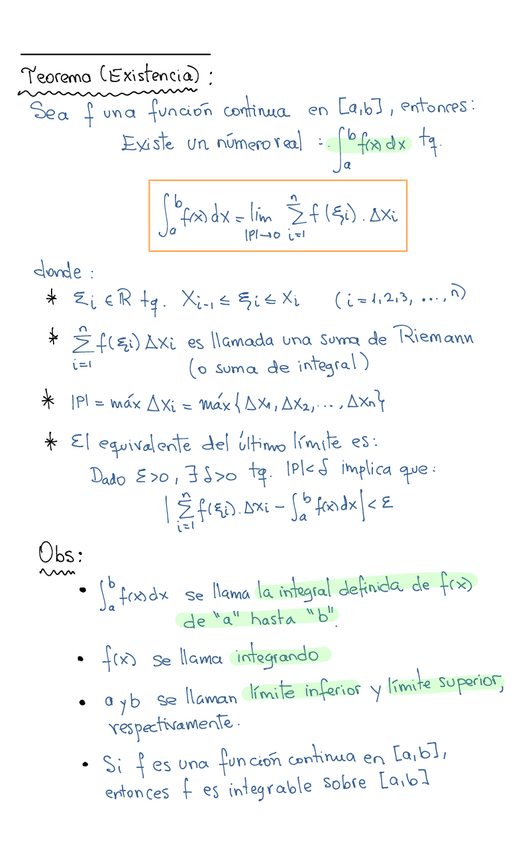 Teorema (Existencia):
Sea f una función continua en [a,b], entonces:
Existe un número real : ∫_a^b f(x) dx tq.
∫_a^b f(x) dx = lim_{|P|→0} Σ_{i=1}^n f(ξi) . Δxi
donde :
* Σi ∈ ℝ tq. Xi-1 ≤ ξi ≤ Xi (i = 1,2,3, ..., n)
* Σ_{i=1}^n f(ξi) Δxi es llamada una suma de Riemann
(o suma de integral)
* |P| = máx Δxi = máx {Δx1, Δx2, ..., Δxn}
* El equivalente del último límite es:
Dado ε>0, ∃ δ>0 tq. |P|<δ implica que:
| Σ_{i=1}^n f(ξi). Δxi - ∫_a^b f(x) dx | < ε
Obs:
• ∫_a^b f(x) dx se llama la integral definida de f(x)
de "a" hasta "b".
• f(x) se llama integrando
• a y b se llaman límite inferior y límite superior,
respectivamente.
• Si f es una función continua en [a,b],
entonces f es integrable sobre [a,b]